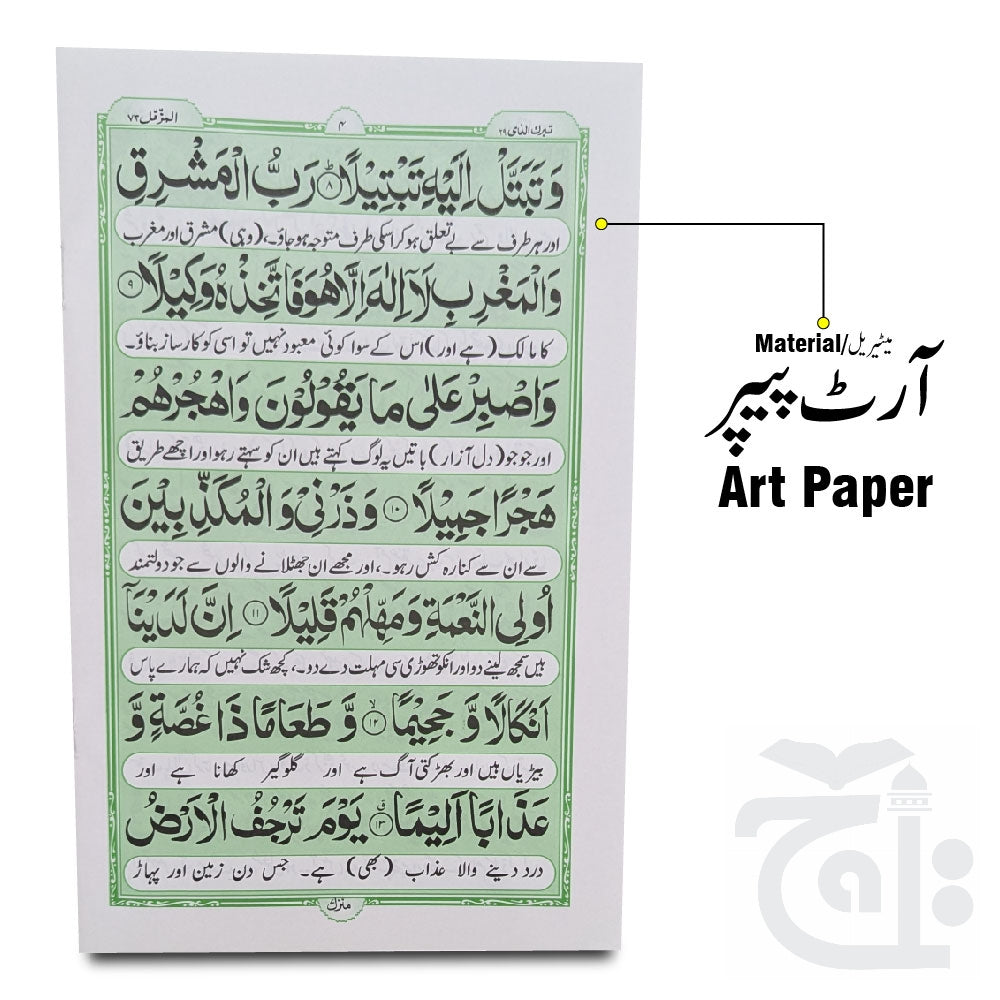 المزّمّل ۷۳
۴
تبرک الذی ۲۹
وَ تَبَتَّلْ اِلَیْهِ تَبْتِیْلًا ۸ رَبُّ الْمَشْرِقِ
اور ہر طرف سے بے تعلق ہو کر اسکی طرف متوجہ ہو جاؤ۔، (وہی) مشرق اور مغرب
وَالْمَغْرِبِ لَاۤ اِلٰهَ اِلَّا هُوَ فَاتَّخِذْهُ وَكِیْلًا ۹
کا مالک (ہے اور) اس کے سوا کوئی معبود نہیں تو اسی کو کارساز بناؤ۔
وَاصْبِرْ عَلٰی مَا یَقُوْلُوْنَ وَاهْجُرْهُمْ
اور جو جو (دل آزار) باتیں یہ لوگ کہتے ہیں ان کو سہتے رہو اور اچھے طریق
هَجْرًا جَمِیْلًا ۱۰ وَذَرْنِیْ وَ الْمُكَذِّبِیْنَ
سے ان سے کنارہ کش رہو۔، اور مجھے ان جھٹلانے والوں سے جو دولتمند
اُولِی النَّعْمَةِ وَ مَهِّلْهُمْ قَلِیْلًا ۱۱ اِنَّ لَدَیْنَاۤ
ہیں سمجھ لینے دو اور انکو تھوڑی سی مہلت دے دو۔، کچھ شک نہیں کہ ہمارے پاس
اَنْكَالًا وَّ جَحِیْمًا ۱۲ وَّ طَعَامًا ذَا غُصَّةٍ وَّ
بیڑیاں ہیں اور بھڑکتی آگ ہے اور گلوگیر کھانا ہے اور
عَذَابًا اَلِیْمًا ۱۳ یَوْمَ تَرْجُفُ الْاَرْضُ
درد دینے والا عذاب (بھی) ہے۔ جس دن زمین اور پہاڑ
منزل
Material/میٹیریل
آرٹ پیپر
Art Paper
تاج